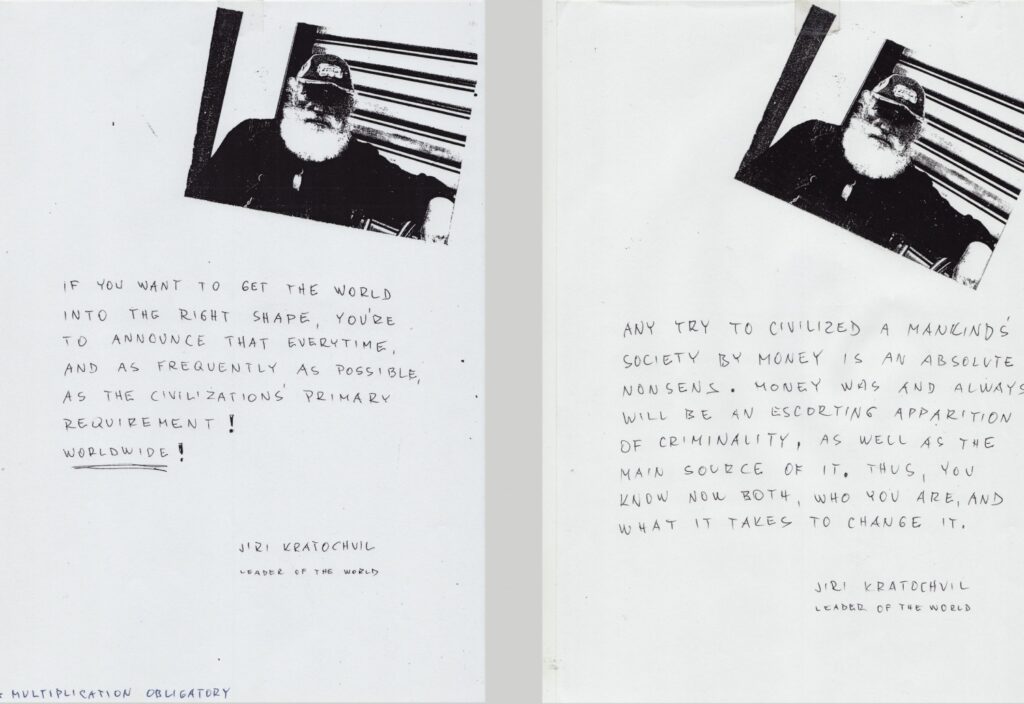 IF YOU WANT TO GET THE WORLD
INTO THE RIGHT SHAPE, YOU'RE
TO ANNOUNCE THAT EVERYTIME,
AND AS FREQUENTLY AS POSSIBLE,
AS THE CIVILIZATIONS' PRIMARY
REQUIREMENT!
WORLDWIDE!
JIRI KRATOCHVIL
LEADER OF THE WORLD
* MULTIPLICATION OBLIGATORY
ANY TRY TO CIVILIZED A MANKINDS'
SOCIETY BY MONEY IS AN ABSOLUTE
NONSENS. MONEY WAS AND ALWAYS
WILL BE AN ESCORTING APPARITION
OF CRIMINALITY, AS WELL AS THE
MAIN SOURCE OF IT. THUS, YOU
KNOW NOW BOTH, WHO YOU ARE, AND
WHAT IT TAKES TO CHANGE IT.
JIRI KRATOCHVIL
LEADER OF THE WORLD